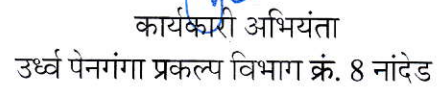 कार्यकारी अभियंता
उर्ध्व पेनगंगा प्रकल्प विभाग क्रं. 8 नांदेड